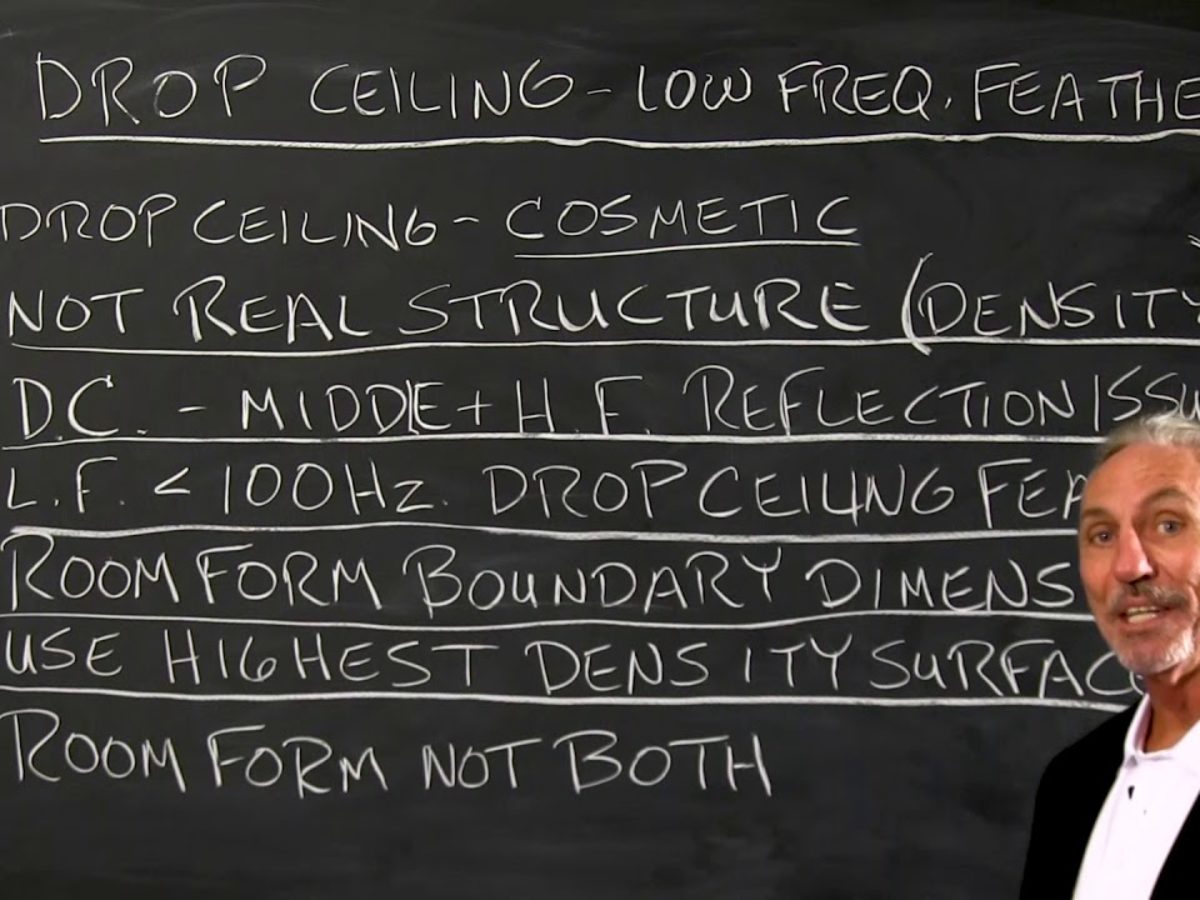 DROP CEILING - LOW FREQ. FEATHE
DROP CEILING - COSMETIC
NOT REAL STRUCTURE (DENSITY
D.C. - MIDDLE + H.F. REFLECTION ISSU
L.F. < 100Hz. DROP CEILING FEA
ROOM FORM BOUNDARY DIMENS
USE HIGHEST DENSITY SURFAC
ROOM FORM NOT BOTH